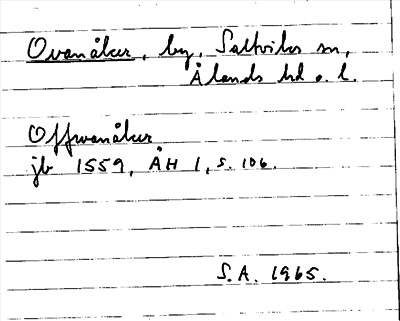 Ovanåker, by, Saltviks sn,
Ålands hd o. l.
Offwanåker
jb 1559, ÅH 1, s. 106.
S.A. 1965.